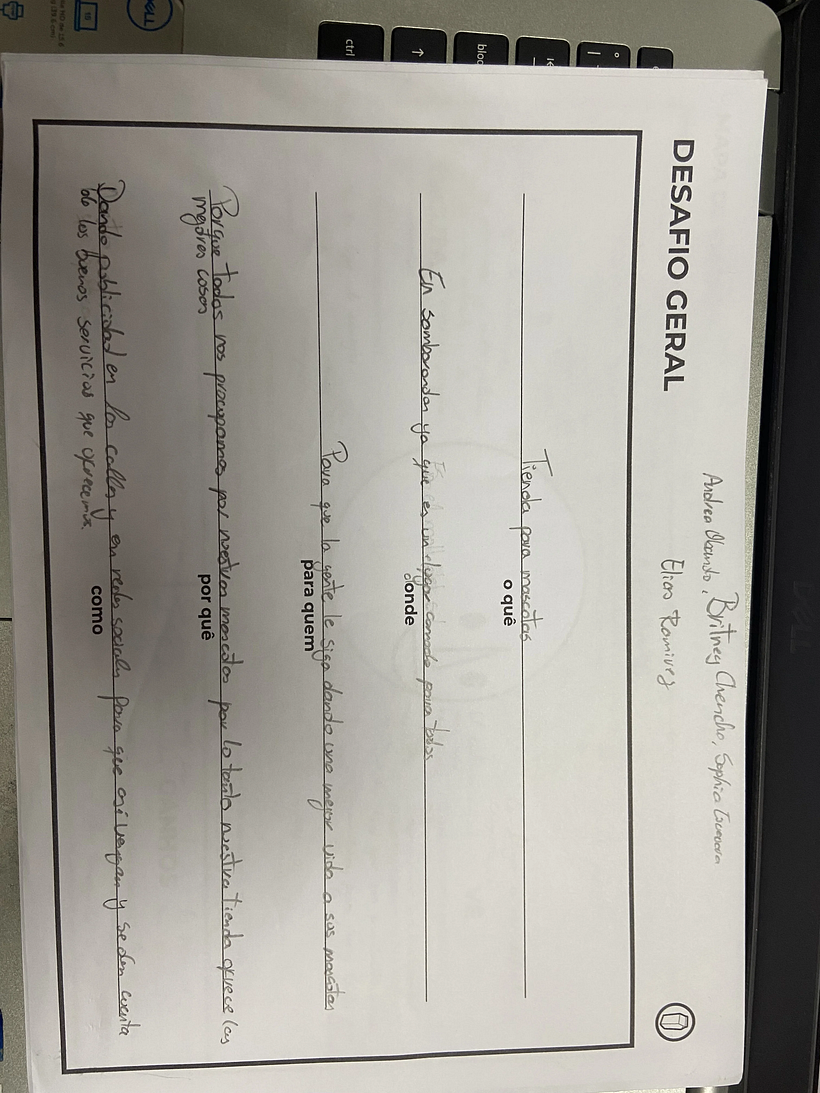 DESAFIO GERAL
Andrea Obando, Britney Chencho, Sophia
Elias Ramirez
Tienda para mascotas
o quê
En samborondon ya que es un lugar comodo para todos
onde
Para que la gente le siga dando una mejor vida a sus mascotas
para quem
Porque todos nos procupamos por nuestras mascotas por lo tanto nuestra tienda ofrece las
mejores cosas
por quê
Dando publicidad en las calles y en redes sociales para que asi vengan y se den cuenta
de los buenos servicios que ofrecemos.
como
ctrl
↑
bloq
DELL